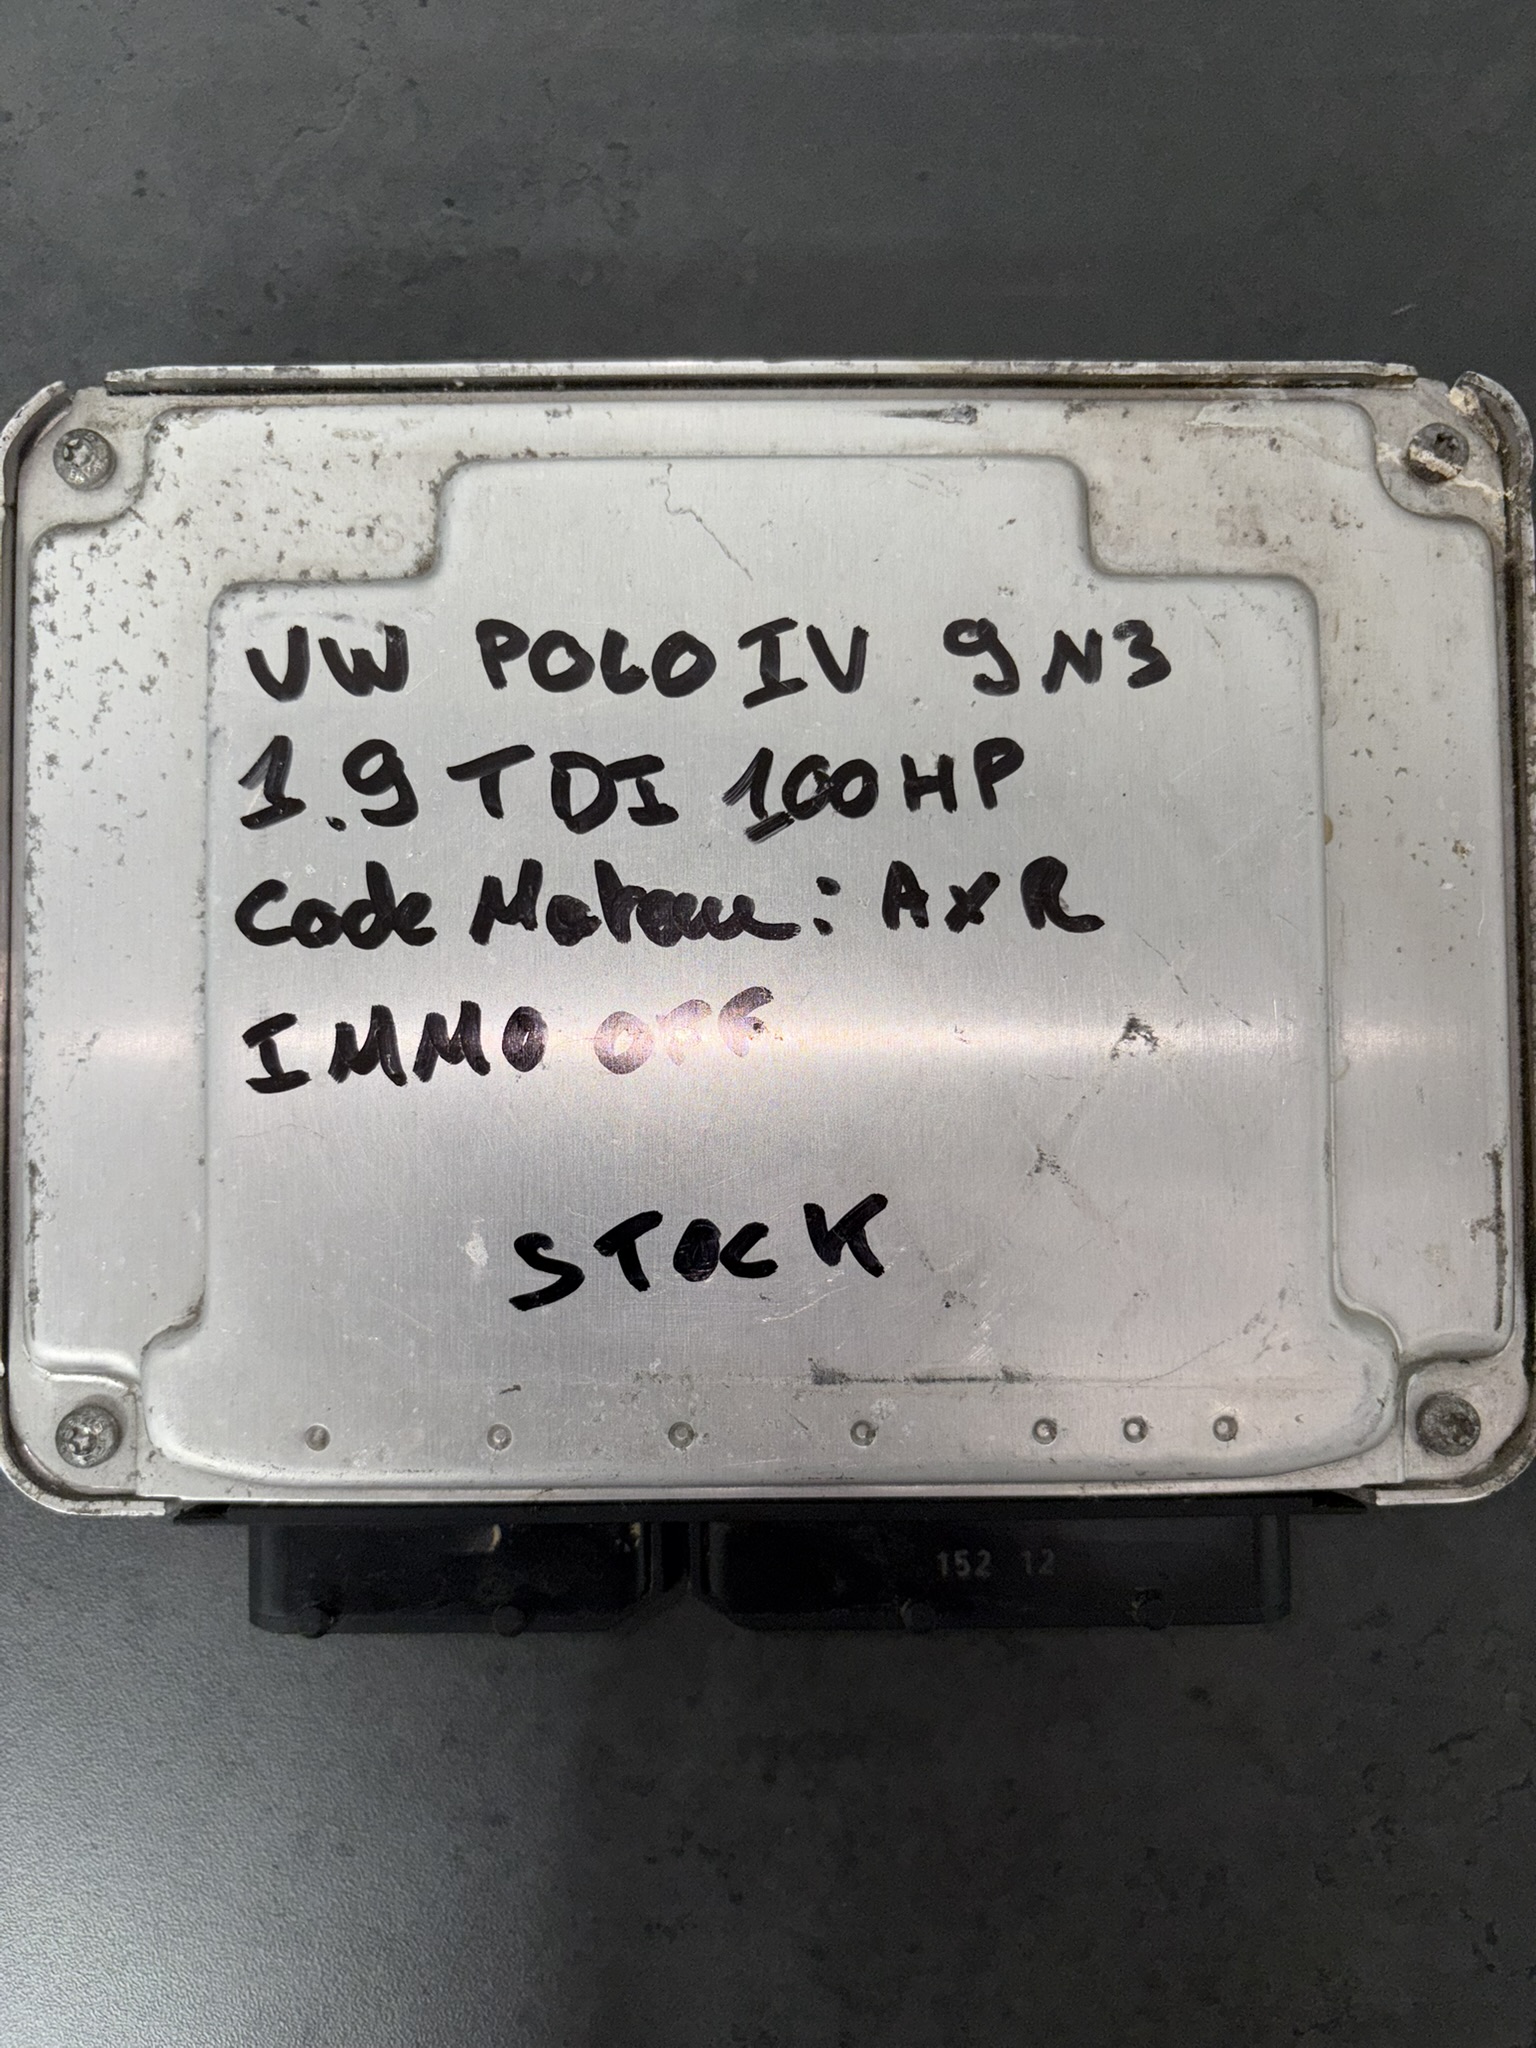 VW POLO IV 9N3
1.9 TDI 100HP
Code Moteur : AXR
IMMO OFF
STOCK
152 12